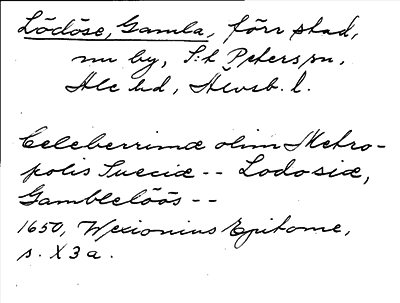 Lödöse, Gamla, förr stad,
nu by, S:t Peters sn,
Ale hd, Älvsb. l.
Celeberrimæ olim Metro-
polis Sueciæ -- Lodosiæ,
Gamblelöös --
1650, Wexionius Epitome,
s. X 3 a.